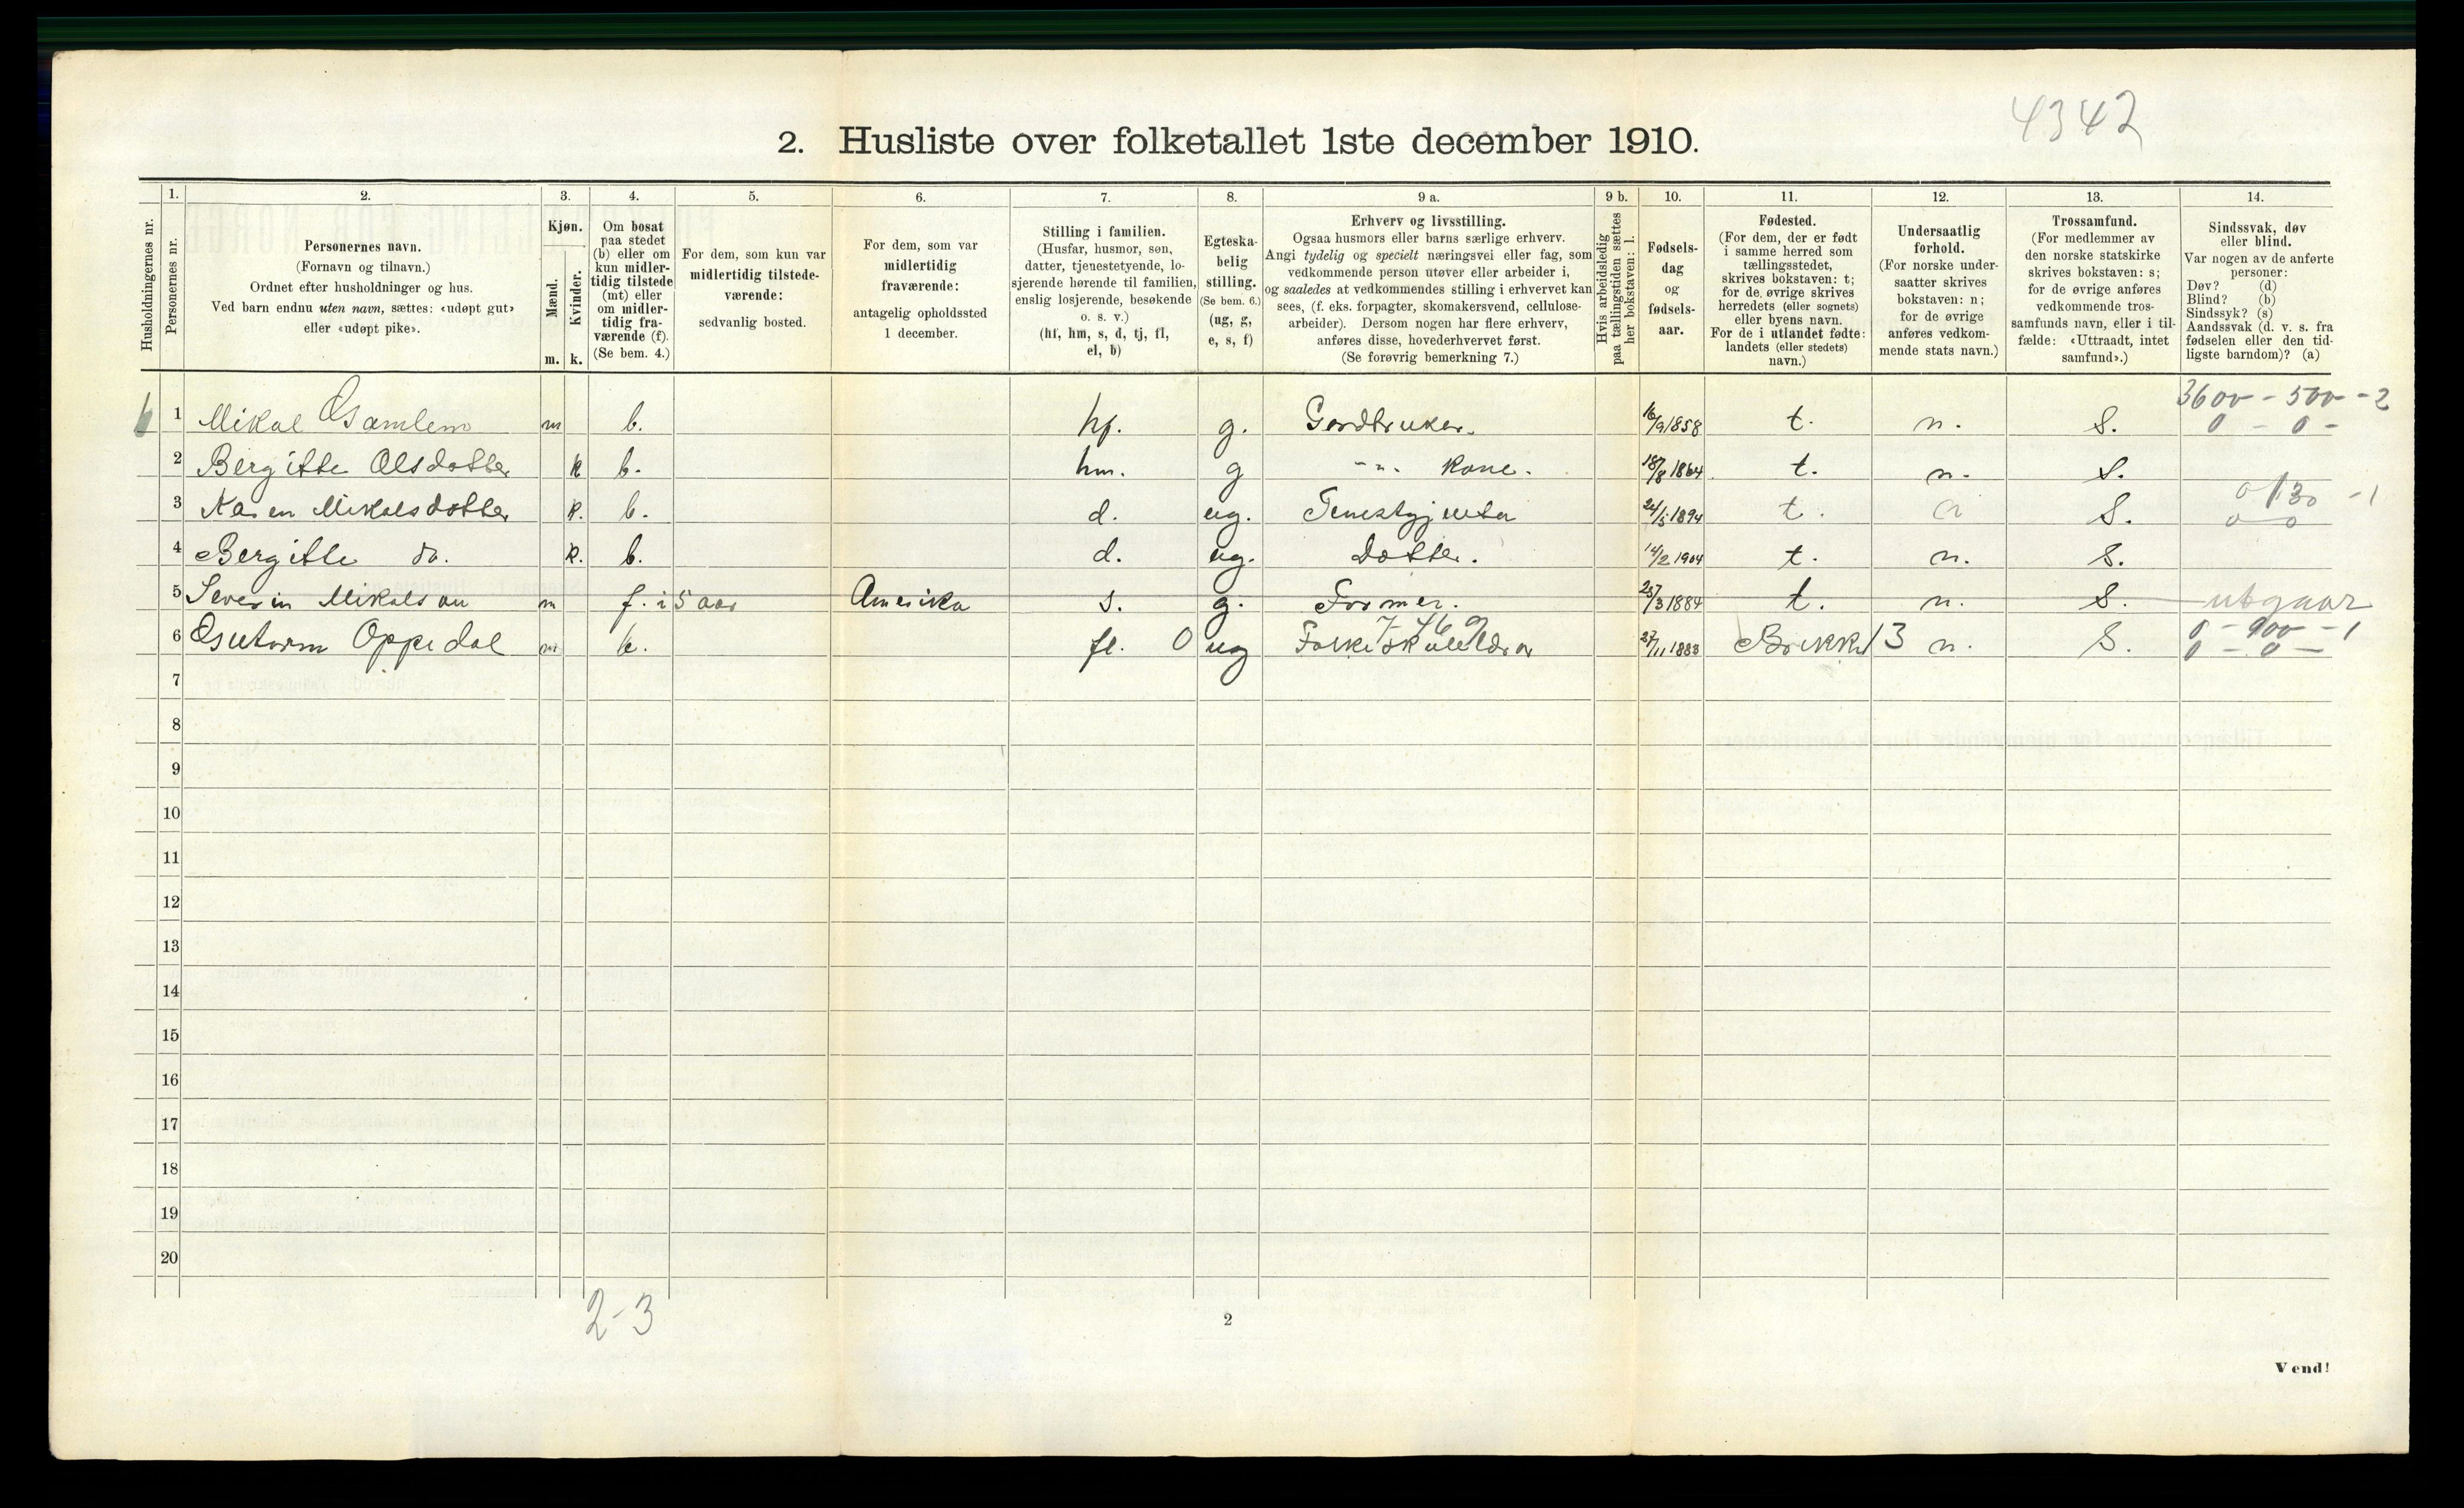 4342
2. Husliste over folketallet 1ste december 1910.
Husholdningernes nr.
1. Personernes nr.
2. Personernes navn.
(Fornavn og tilnavn.)
Ordnet efter husholdninger og hus.
Ved barn endnu uten navn, sættes: «udøpt gut»
eller «udøpt pike».
3. Kjøn.
Mænd. m.
Kvinder. k.
4. Om bosat
paa stedet
(b) eller om
kun midler-
tidig tilstede
(mt) eller
om midler-
tidig fra-
værende (f).
(Se bem. 4.)
5. For dem, som kun var
midlertidig tilstede-
værende:
sedvanlig bosted.
6. For dem, som var
midlertidig
fraværende:
antagelig opholdssted
1 december.
7. Stilling i familien.
(Husfar, husmor, søn,
datter, tjenestetyende, lo-
sjerende hørende til familien,
enslig losjerende, besøkende
o. s. v.)
(hf, hm, s, d, tj, fl,
el, b)
8. Egteska-
belig
stilling.
(Se bem. 6.)
(ug, g,
e, s, f)
9 a. Erhverv og livsstilling.
Ogsaa husmors eller barns særlige erhverv.
Angi tydelig og specielt næringsvei eller fag, som
vedkommende person utøver eller arbeider i,
og saaledes at vedkommendes stilling i erhvervet kan
sees, (f. eks. forpagter, skomakersvend, cellulose-
arbeider). Dersom nogen har flere erhverv,
anføres disse, hovederhvervet først.
(Se forøvrig bemerkning 7.)
9 b. Hvis arbeidsledig
paa tællingstiden sættes
her bokstaven: l.
10. Fødsels-
dag
og
fødsels-
aar.
11. Fødested.
(For dem, der er født
i samme herred som
tællingsstedet,
skrives bokstaven: t;
for de øvrige skrives
herredets (eller sognets)
eller byens navn.
For de i utlandet fødte:
landets (eller stedets)
navn.)
12. Undersaatlig
forhold.
(For norske under-
saatter skrives
bokstaven: n;
for de øvrige
anføres vedkom-
mende stats navn.)
13. Trossamfund.
(For medlemmer av
den norske statskirke
skrives bokstaven: s;
for de øvrige anføres
vedkommende tros-
samfunds navn, eller i til-
fælde: «Uttraadt, intet
samfund».)
14. Sindssvak, døv
eller blind.
Var nogen av de anførte
personer:
Døv? (d)
Blind? (b)
Sindssyk? (s)
Aandssvak (d. v. s. fra
fødselen eller den tid-
ligste barndom)? (a)
3600 - 500 - 2
1 Mikal Osamlem m b. hf. g. Gardbruker. 16/9 1858 t. n. S. 0 - 0 -
2 Bergitte Olsdotter k b. hm. g -"- Kone. 18/8 1864 t. n. S.
0 130 - 1
3 Karen Mikalsdotter k. b. d. ug. Tenestgjenta 24/5 1894 t. n S. 0 0
4 Bergitte do. k. b. d. ug. Dotter. 14/2 1904 t. n. S.
5 Severin Mikalson m f. i 5 aar Amerika s. g. Farmer. 25/3 1884 t. n. S. utgaar
7469 0 - 900 - 1
6 Guttorm Oppedal m b. fl. 0 ug Folkeskulelærar 27/11 1883 Brekke 13 n. S. 0 - 0 -
7
8
9
10
11
12
13
14
15
16
17
18
19
20
2-3
2
Vend!